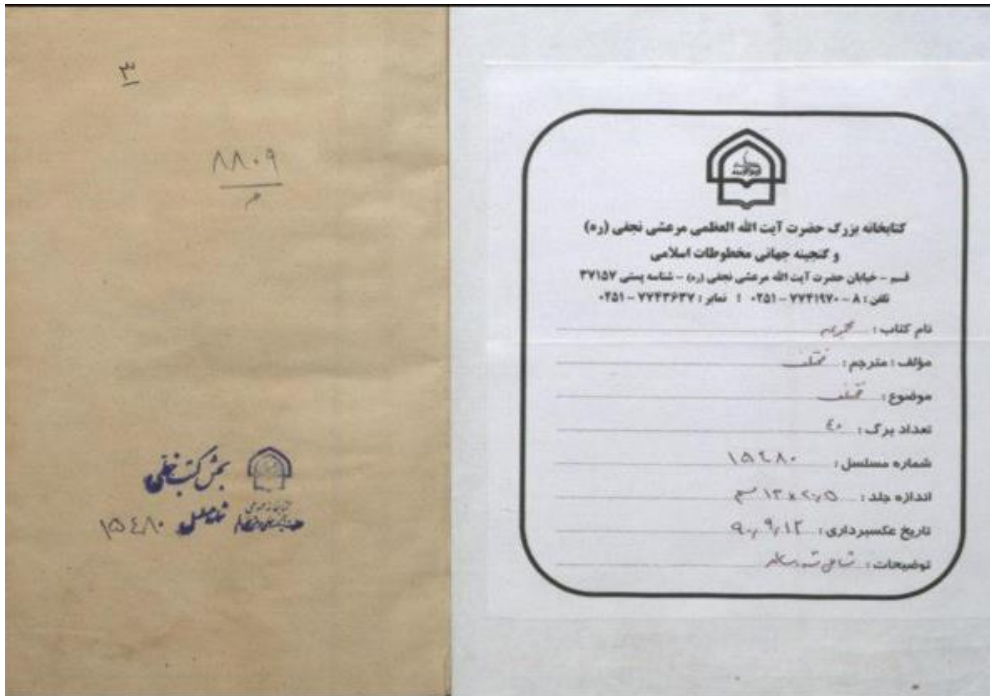 ۳
۸۸۰۹
م
بخش کتب خطی
۱۵۴۸۰
کتابخانه بزرگ حضرت آیت الله العظمی مرعشی نجفی (ره)
و گنجینه جهانی مخطوطات اسلامی
قسم - خیابان حضرت آیت الله مرعشی نجفی (ره) - شناسه پستی ۳۷۱۵۷
تلفن: ۸ - ۷۷۴۱۹۷۰ - ۰۲۵۱ ؛ نمابر: ۷۷۴۳۶۳۷ - ۰۲۵۱
نام کتاب:
مؤلف؛ مترجم: مختلف
موضوع: مختلف
تعداد برگ: ۴۰
شماره مسلسل: ۱۵۴۸۰
اندازه جلد:
تاریخ عکسبرداری: ۹۰٫۹٫۱۲
توضیحات: